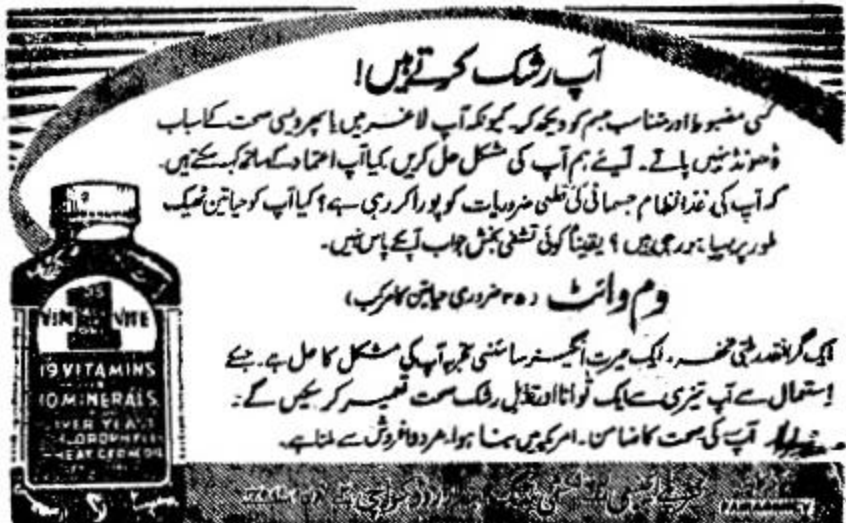 آپ رشک کرتے ہیں!
کسی مضبوط اور متناسب جسم کو دیکھ کر۔ کیونکہ آپ لاغر ہیں یا پھر ویسی صحت کے اسباب
ڈھونڈ نہیں پاتے۔ آیئے ہم آپ کی مشکل حل کریں کیا آپ اعتماد کے ساتھ کہہ سکتے ہیں۔
کہ آپ کی غذا نظام جسمانی کی قطعی ضروریات کو پورا کر رہی ہے؟ کیا آپ کو حیاتین ٹھیک
طور پر مہیا ہو رہی ہیں؟ یقیناً کوئی تشفی بخش جواب آپکے پاس نہیں۔
وم وائٹ (۳۵ ضروری حیاتین کا مرکب)
ایک گرانقدر طبی تحفہ، ایک حیرت انگیز سائنسی تجربہ آپ کی مشکل کا حل ہے۔ جسکے
استعمال سے آپ تیزی سے ایک توانا اور قابل رشک صحت تعمیر کر سکیں گے۔
آپ کی صحت کا ضامن۔ امریکہ میں بنا ہوا۔ ہر دوا فروش سے ملتا ہے۔
VIM VITE
19 VITAMINS
10 MINERALS
LIVER YEAST
CHLOROPHYLL
WHEAT GERM OIL